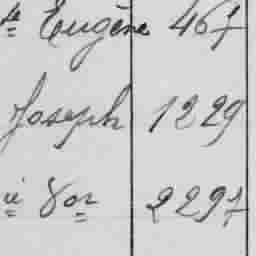 Eugène 467
Joseph 1229
2297